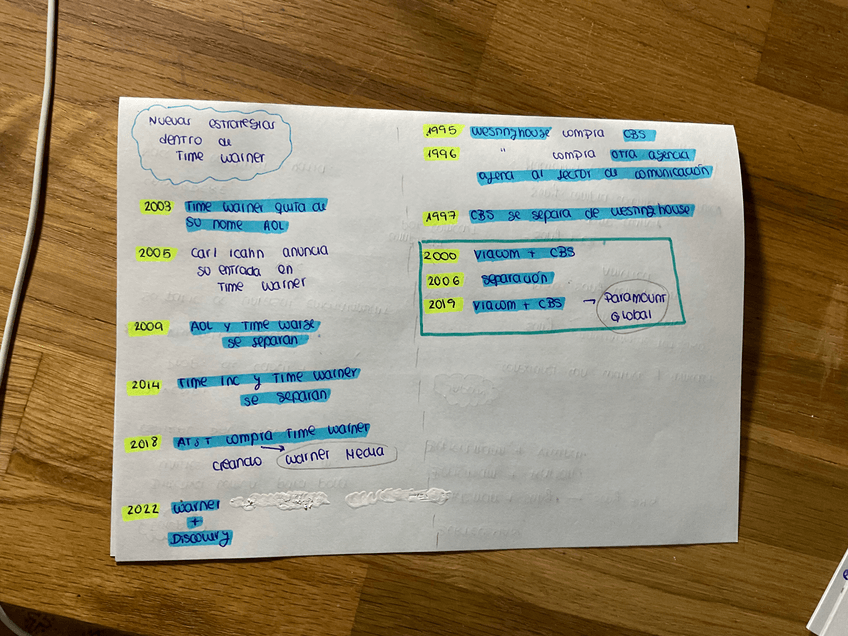 Nuevas estrategias
dentro de
Time Warner
2003 Time Warner quita de
su nome AOL
2005 Carl Icahn anuncia
su entrada en
Time Warner
2009 AOL y Time
se separan
2014 Time Inc y Time Warner
se separan
2018 AT&T compra Time Warner
→
creando Warner Media
2022 Warner
+
Discovery
1995 Westinghouse compra CBS
1996 " compra otra agencia
ajena al sector de comunicación
1997 CBS se separa de Westinghouse
2000 Viacom + CBS
2006 separación
2019 Viacom + CBS → Paramount
Global